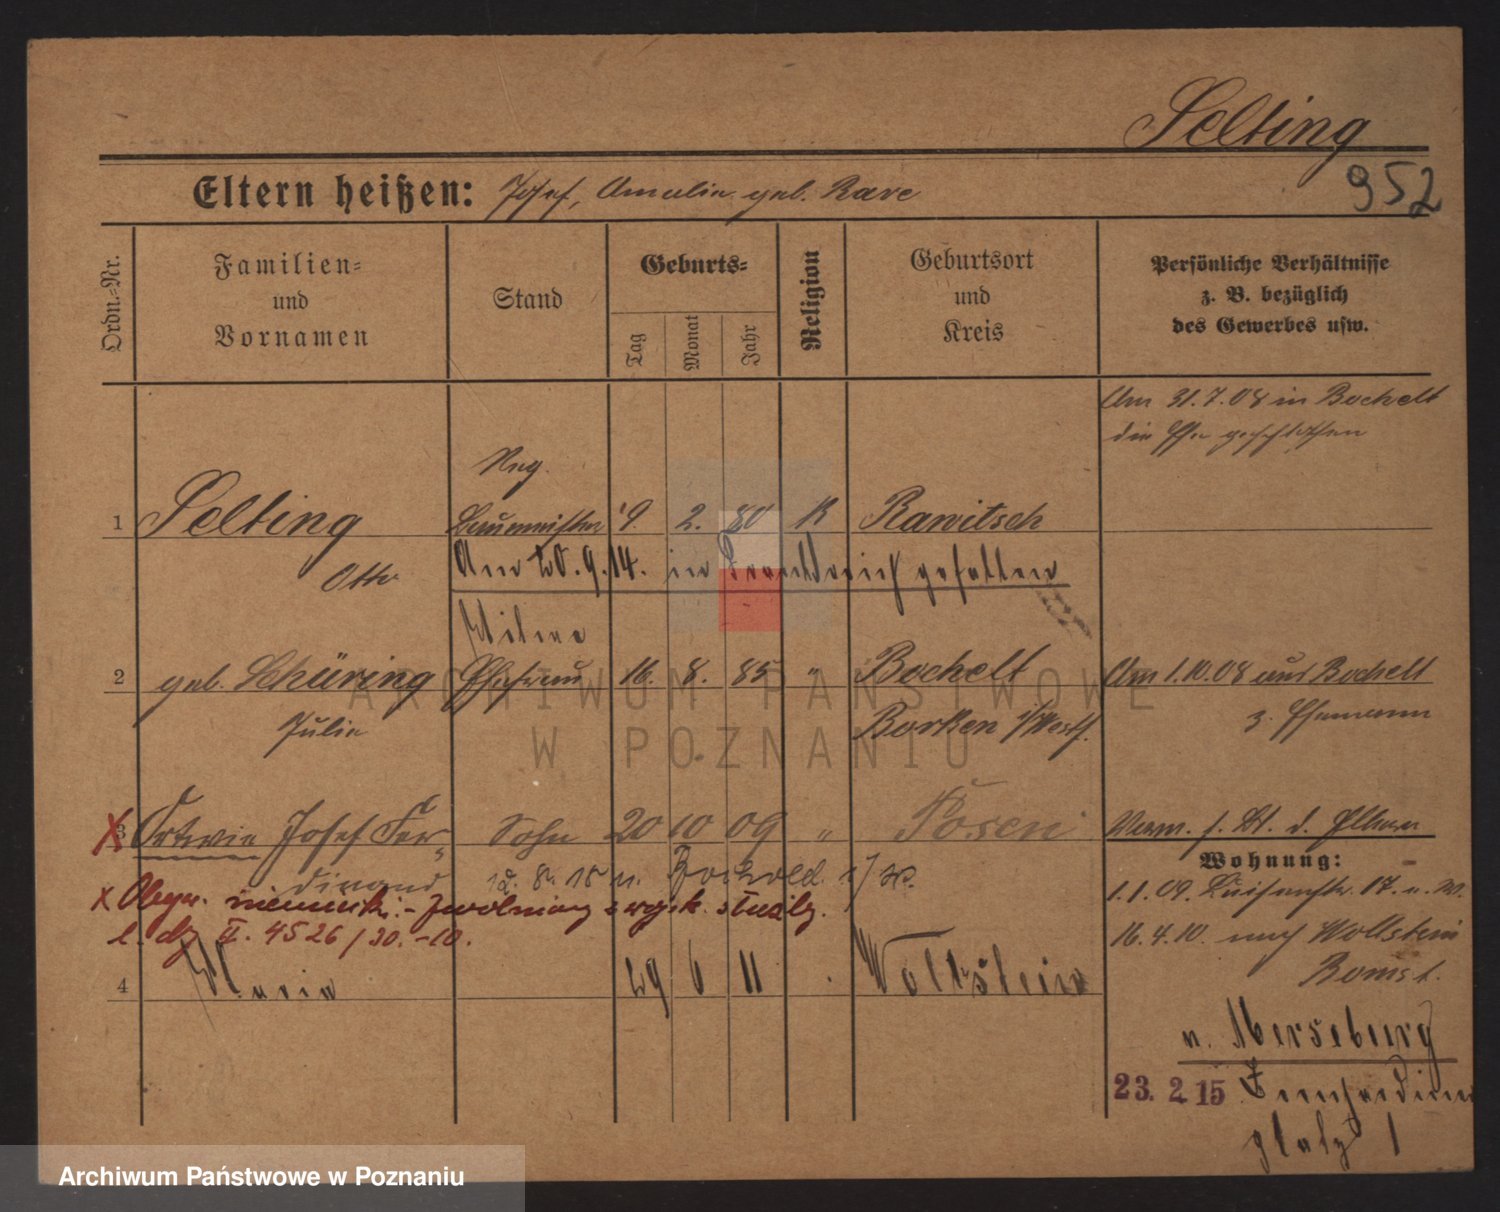 Selting
952
Eltern heißen: Josef, Amalie geb. Rave
Ordn.-Nr.
Familien-
und
Vornamen
Stand
Geburts-
Tag
Monat
Jahr
Religion
Geburtsort
und
Kreis
Persönliche Verhältnisse
z. B. bezüglich
des Gewerbes usw.
Am 31.7.08 in Bocholt
die Ehe geschlossen
Reg.
1 Selting Baumeister 9. 2. 80 K Rawitsch
Otto
Am 20.9.14. in Frankreich gefallen
Witwe
2 geb. Schüring Ehefrau 16. 8. 85 " Bocholt Am 1.10.08 aus Bocholt
Julie Borken i/Westf. z. Ehemann
X 3 Ortwin Josef Fer- Sohn 20 10 09 " Posen
dinand Bocholt i/W.
Wohnung:
x Obyw. niemiecki.
1.1.09. Luisenstr. 17.
l. dz II. 4526/30.-10.
16.4.10. nach Wollstein
Bomst.
4 Maria 29 6 11 . Wollstein
n. Merseburg
23. 2. 15
platz 1
ARCHIWUM PAŃSTWOWE
W POZNANIU
Archiwum Państwowe w Poznaniu